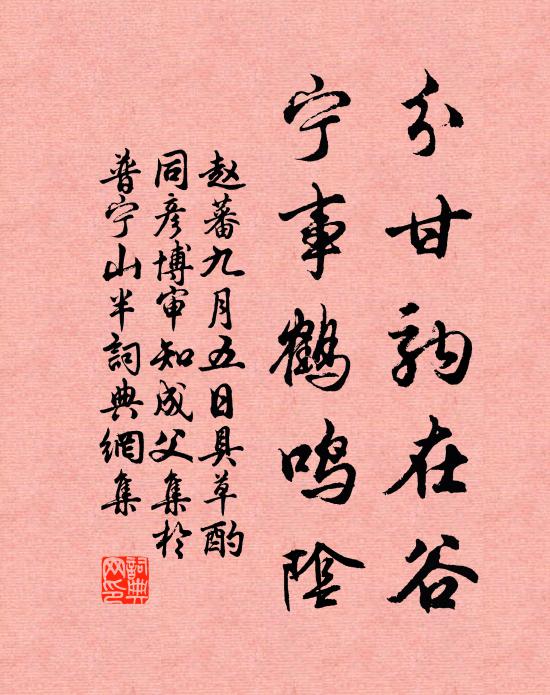 分甘驹在谷
宁事鹤鸣陰
赵蕃九月五日具草酌
同彦博审知成父集於
普宁山半詞典網集
詞典
网印